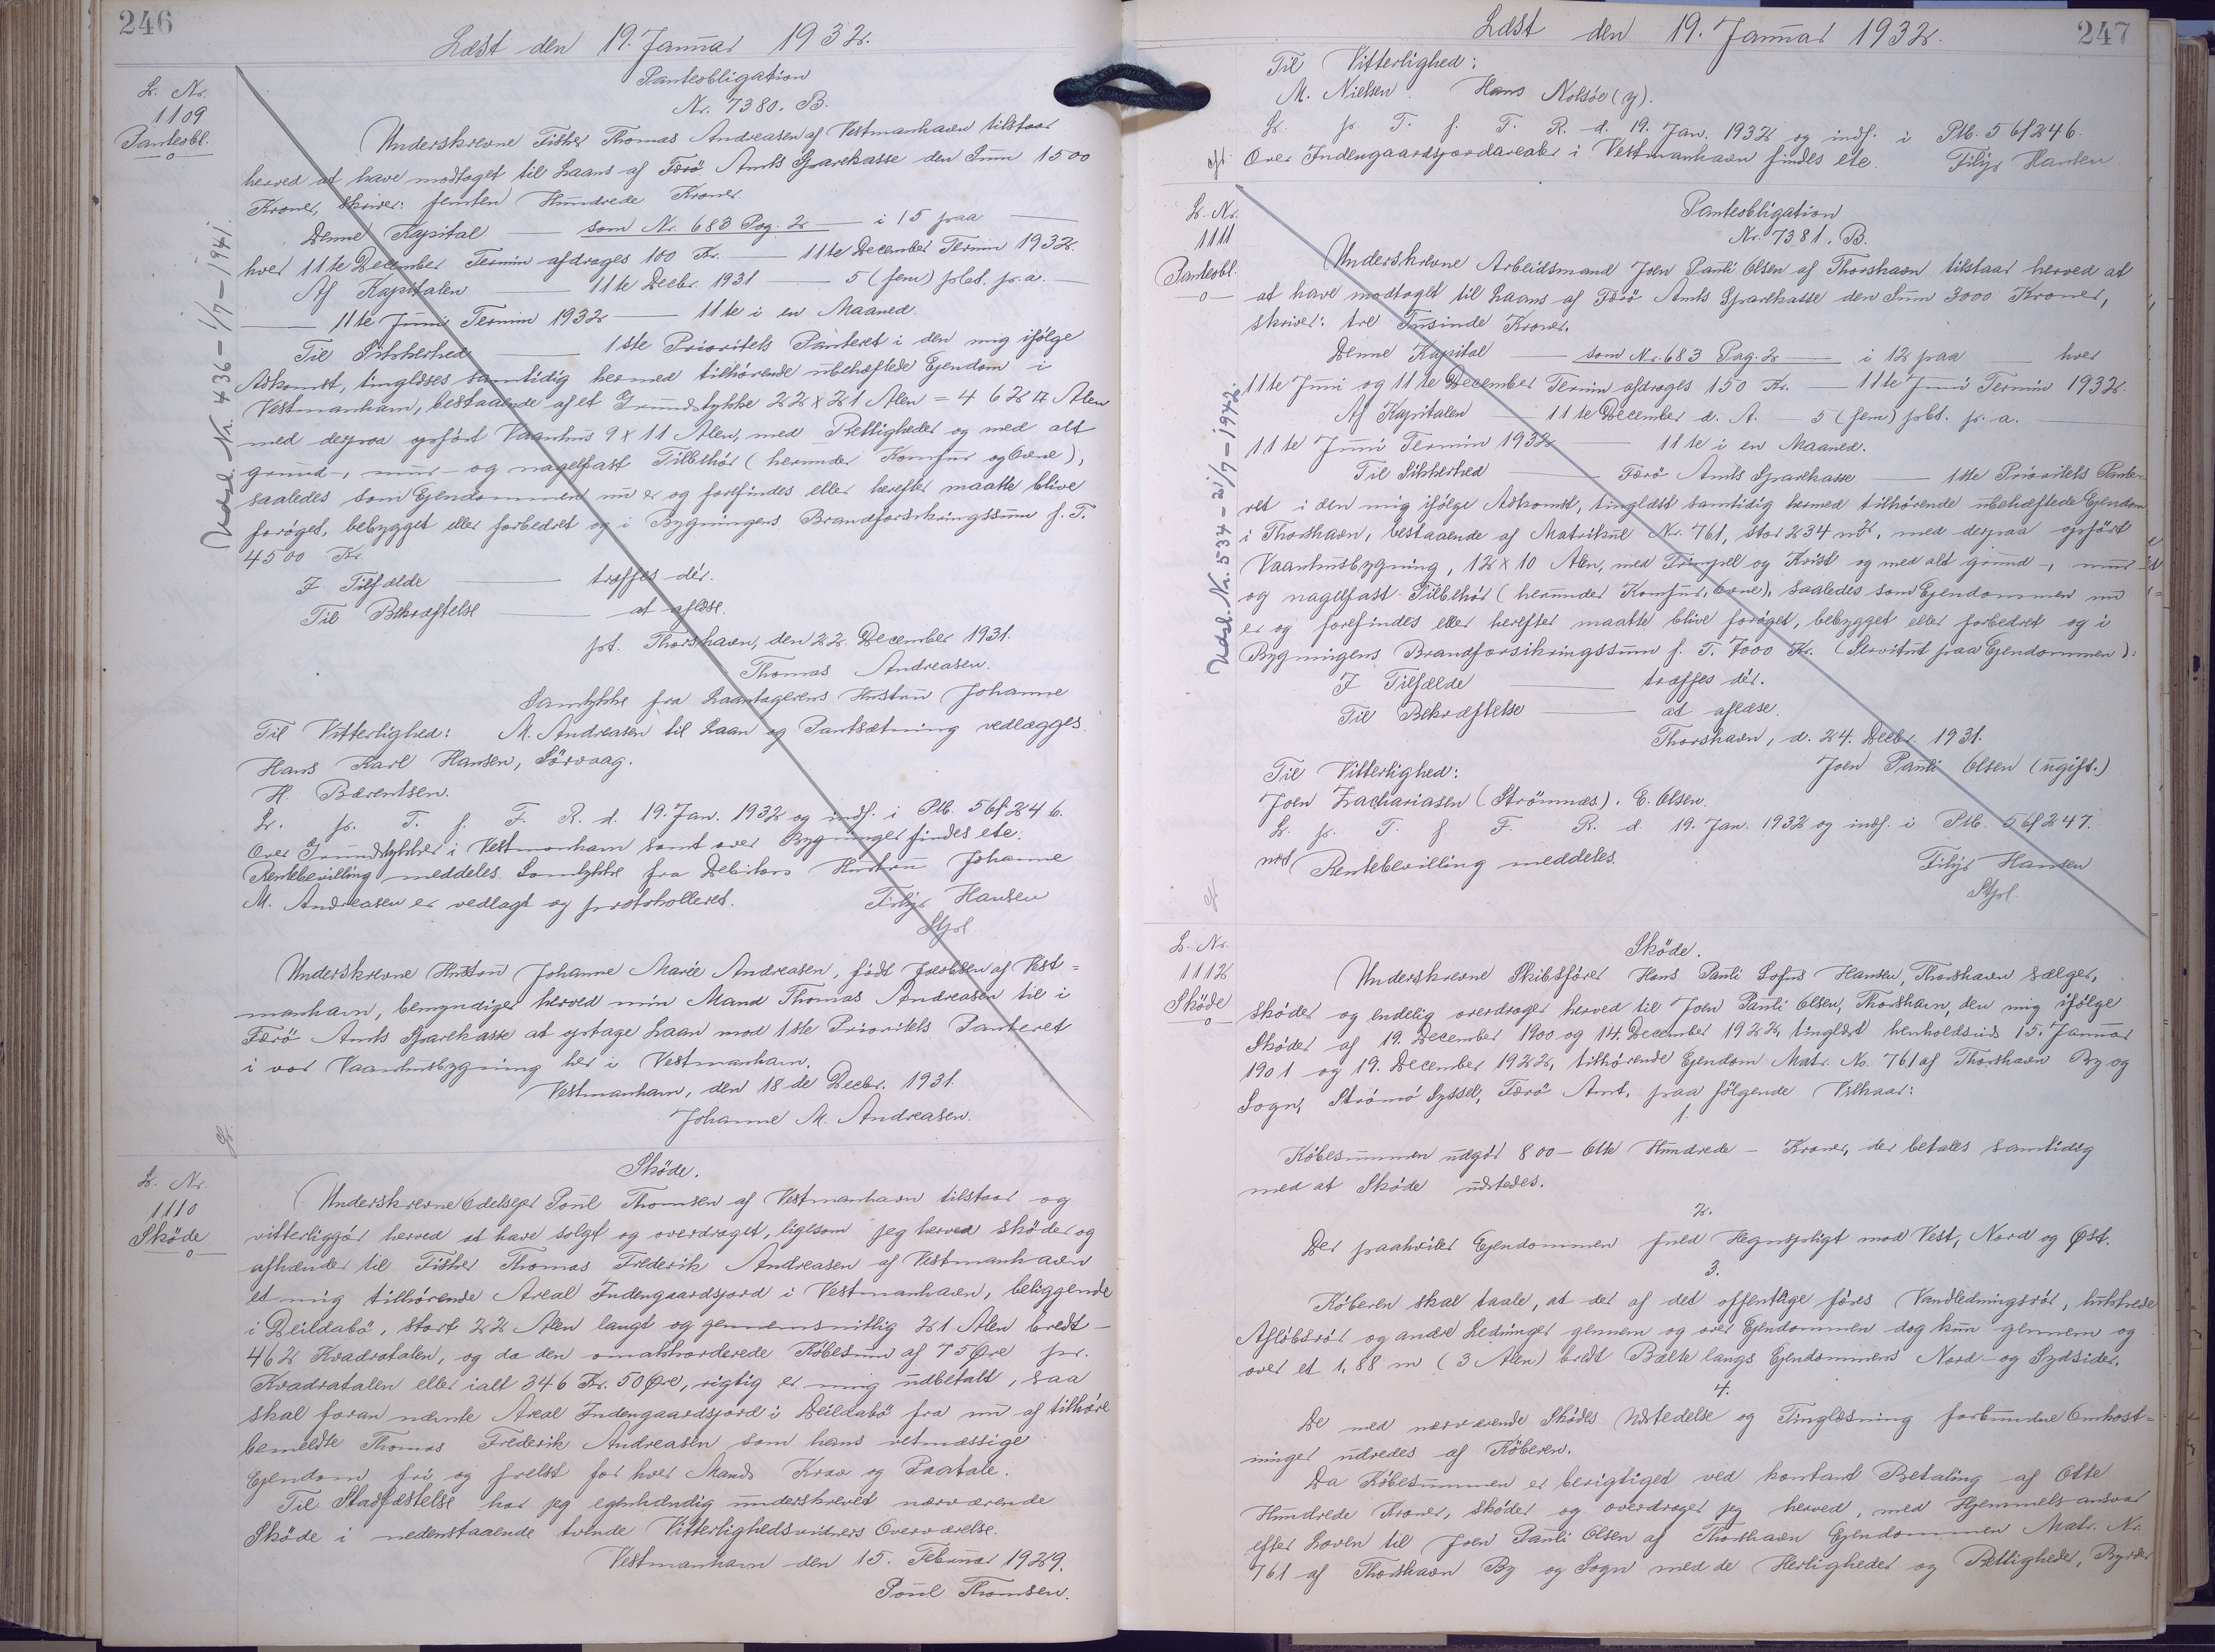 246
Læst den 19. Januar 1932.
L. Nr.
1109
Panteobl.
Panteobligation
Nr. 7380. B.
Underskrevne Fisker Thomas Andreasen af Vestmanhavn tilstaar
herved at have modtaget til Laans af Færö Amts Sparekasse den Sum 1500
Kroner, skriver: femten Hundrede Kroner.
Denne Kapital — som Nr. 683 Pag. 2 — i 15 paa —
hver 11te December Termin afdrages 100 Kr. — 11te December Termin 1932.
Af Kapitalen — 11te Decbr. 1931 — 5 (fem) pCt. p. a. —
— 11te Juni Termin 1932 — 11te i en Maaned.
Til Sikkerhed — 1ste Prioritets Panteret i den mig ifölge
Adkomst, tinglæses samtidig hermed tilhörende ubehæftede Ejendom i
Vestmanhavn, bestaaende af et Grundstykke 22 x 21 Alen = 462 □ Alen
med derpaa opfört Vaanhus 9 x 11 Alen, med Rettigheder og med alt
grund-, mur- og nagelfast Tilbehör (herunder Komfur og Ovne),
saaledes som Ejendommen nu er og forefindes eller herefter maatte blive
foröget, bebygget eller forbedret og i Bygningens Brandforsikringssum f. T.
4500 Kr.
I Tilfælde — træffes dér.
Til Bekræftelse — at aflæse.
pt. Thorshavn, den 22. December 1931.
Thomas Andreasen.
Samtykke fra Laantagerens Hustru Johanne
Til Vitterlighed: M. Andreasen til Laan og Pantsætning vedlægges.
Hans Karl Hansen, Sörvaag.
H. Bærentsen.
L. p. T. f. F. R. d. 19. Jan. 1932 og indf. i Ptb. 5 bf 246.
Over Grundstykker i Vestmanhavn samt over Bygninger findes etc.
Rentebevilling meddeles. Samtykke fra Debitors Hustru Johanne
M. Andreasen er vedlagt og protokolleret. Filip Hansen
Underskrevne Hustru Johanne Marie Andreasen, födt Jacobsen af Vest=
manhavn, bemyndiger herved min Mand Thomas Andreasen til i
Færö Amts Sparekasse at optage Laan mod 1ste Prioritets Panteret
i vor Vaanhusbygning her i Vestmanhavn.
Vestmanhavn, den 18de Decbr. 1931.
Johanne M. Andreasen.
Udsl. Nr. 436 - 1/7 - 1941.
L. Nr.
1110
Sköde
Sköde.
Underskrevne Odelsejer Poul Thomsen af Vestmanhavn tilstaar og
vitterliggör herved at have solgt og overdraget, ligesom jeg herved sköder og
afhænder til Fisker Thomas Frederik Andreasen af Vestmanhavn
et mig tilhörende Areal Indengaardsjord i Vestmanhavn, beliggende
i Deildabö, stort 22 Alen langt og gennemsnitlig 21 Alen bredt —
462 Kvadratalen, og da den omakkorderede Köbesum af 75 Øre pr.
Kvadratalen eller ialt 346 Kr. 50 Øre, rigtig er mig udbetalt, saa
skal foran nævnte Areal Indengaardsjord i Deildabö fra nu af tilhöre
bemeldte Thomas Frederik Andreasen som hans retmæssige
Ejendom fri og frelst for hver Mands Krav og Paatale.
Til Stadfæstelse har jeg egenhændig underskrevet nærværende
Sköde i nedenstaaende tvende Vitterlighedsvidners Overværelse.
Vestmanhavn den 15. Februar 1929.
Poul Thomsen.
247
Læst den 19. Januar 1932.
Til Vitterlighed:
M. Nielsen. Hans Nolsöe (y).
L. p. T. f. F. R. d. 19. Jan. 1932 og indf. i Ptb. 5 bf 246.
Over Indengaardsjordarealer i Vestmanhavn findes etc. Filip Hansen
L. Nr.
1111
Panteobl.
Panteobligation
Nr. 7381. B.
Underskrevne Arbeidsmand Joen Pauli Olsen af Thorshavn tilstaar herved at
at have modtaget til Laans af Færö Amts Sparekasse den Sum 3000 Kroner,
skriver: tre Tusinde Kroner.
Denne Kapital — som Nr. 683 Pag. 2 — i 12 paa — hver
11te Juni og 11te December Termin afdrages 150 Kr. — 11te Juni Termin 1932.
Af Kapitalen — 11te December d. A. — 5 (fem) pCt. p. a. —
11te Juni Termin 1932 — 11te i en Maaned.
Til Sikkerhed — Færö Amts Sparekasse — 1ste Prioritets Pante-
ret i den mig ifölge Adkomst, tinglæst samtidig hermed tilhörende ubehæftede Ejendom
i Thorshavn, bestaaende af Matrikul Nr. 761, stor 234 m², med derpaa opfört
Vaanhusbygning, 12 x 10 Alen, med Trimpel og Kvist og med alt grund-, mur-
og nagelfast Tilbehör (herunder Komfur, Ovne), saaledes som Ejendommen nu
er og forefindes eller herefter maatte blive foröget, bebygget eller forbedret og i
Bygningens Brandforsikringssum f. T. 7000 Kr. (Servitut paa Ejendommen).
I Tilfælde — træffes dér.
Til Bekræftelse — at aflæse.
Thorshavn, d. 24. Decbr. 1931.
Til Vitterlighed: Joen Pauli Olsen (ugift.)
Joen Zachariasen (Strömnæs). E. Olsen.
L. p. T. f. F. R. d. 19. Jan. 1932 og indf. i Ptb. 5 bf 247.
Rentebevilling meddeles. Filip Hansen
Udsl. Nr. 534 - 21/7 - 1942.
L. Nr.
1112
Sköde
Sköde.
Underskrevne Skibsförer Hans Pauli Sofus Hansen, Thorshavn sælger,
sköder og endelig overdrager herved til Joen Pauli Olsen, Thorshavn, den mig ifölge
Sköder af 19. December 1900 og 14. December 1922, tinglæst henholdsvis 15. Januar
1901 og 19. December 1922, tilhörende Ejendom Matr. No. 761 af Thorshavn By og
Sogn, Strömö Syssel, Færö Amt, paa fölgende Vilkaar:
1.
Köbesummen udgör 800 - Otte Hundrede - Kroner, der betales samtidig
med at Sköde udstedes.
2.
Der paahviler Ejendommen fuld Hegnspligt mod Vest, Nord og Øst.
3.
Köberen skal taale, at der af det offentlige föres Vandledningsrör, lukkede
Aflöbsrör og andre Ledninger gennem og over Ejendommen dog kun gennem og
over et 1,88 m (3 Alen) bredt Bælte langs Ejendommens Nord- og Sydsider.
4.
De med nærværende Sködes Udstedelse og Tinglæsning forbundne Omkost=
ninger udredes af Köberen.
Da Köbesummen er berigtiget ved kontant Betaling af Otte
Hundrede Kroner, sköder og overdrager jeg herved, med Hjemmelsansvar
efter Loven til Joen Pauli Olsen af Thorshavn Ejendommen Matr. Nr.
761 af Thorshavn By og Sogn med de Herligheder og Rettigheder, Byrder